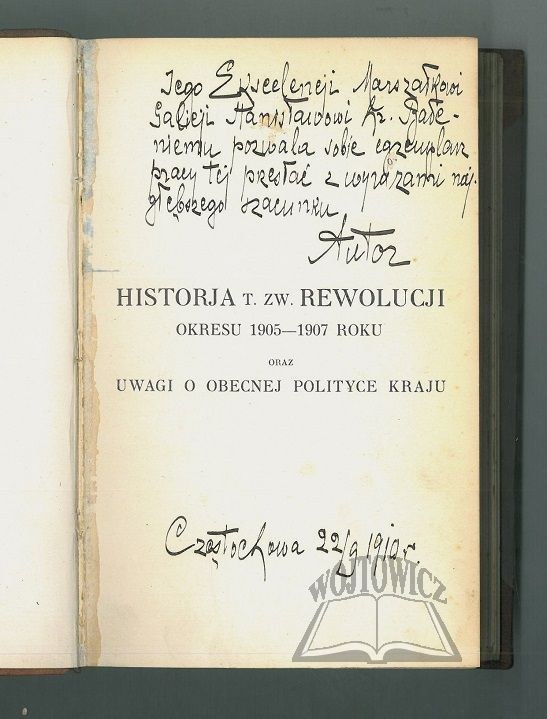 Jego Ekscelencji Marszałkowi
Galicji Stanisławowi hr. Bade-
niemu pozwala sobie egzemplarz
pracy tej przesłać z wyrazami naj-
głębszego szacunku
Autor
HISTORJA T. ZW. REWOLUCJI
OKRESU 1905—1907 ROKU
ORAZ
UWAGI O OBECNEJ POLITYCE KRAJU
Częstochowa 22/9 1910 r.
WÓJTOWICZ